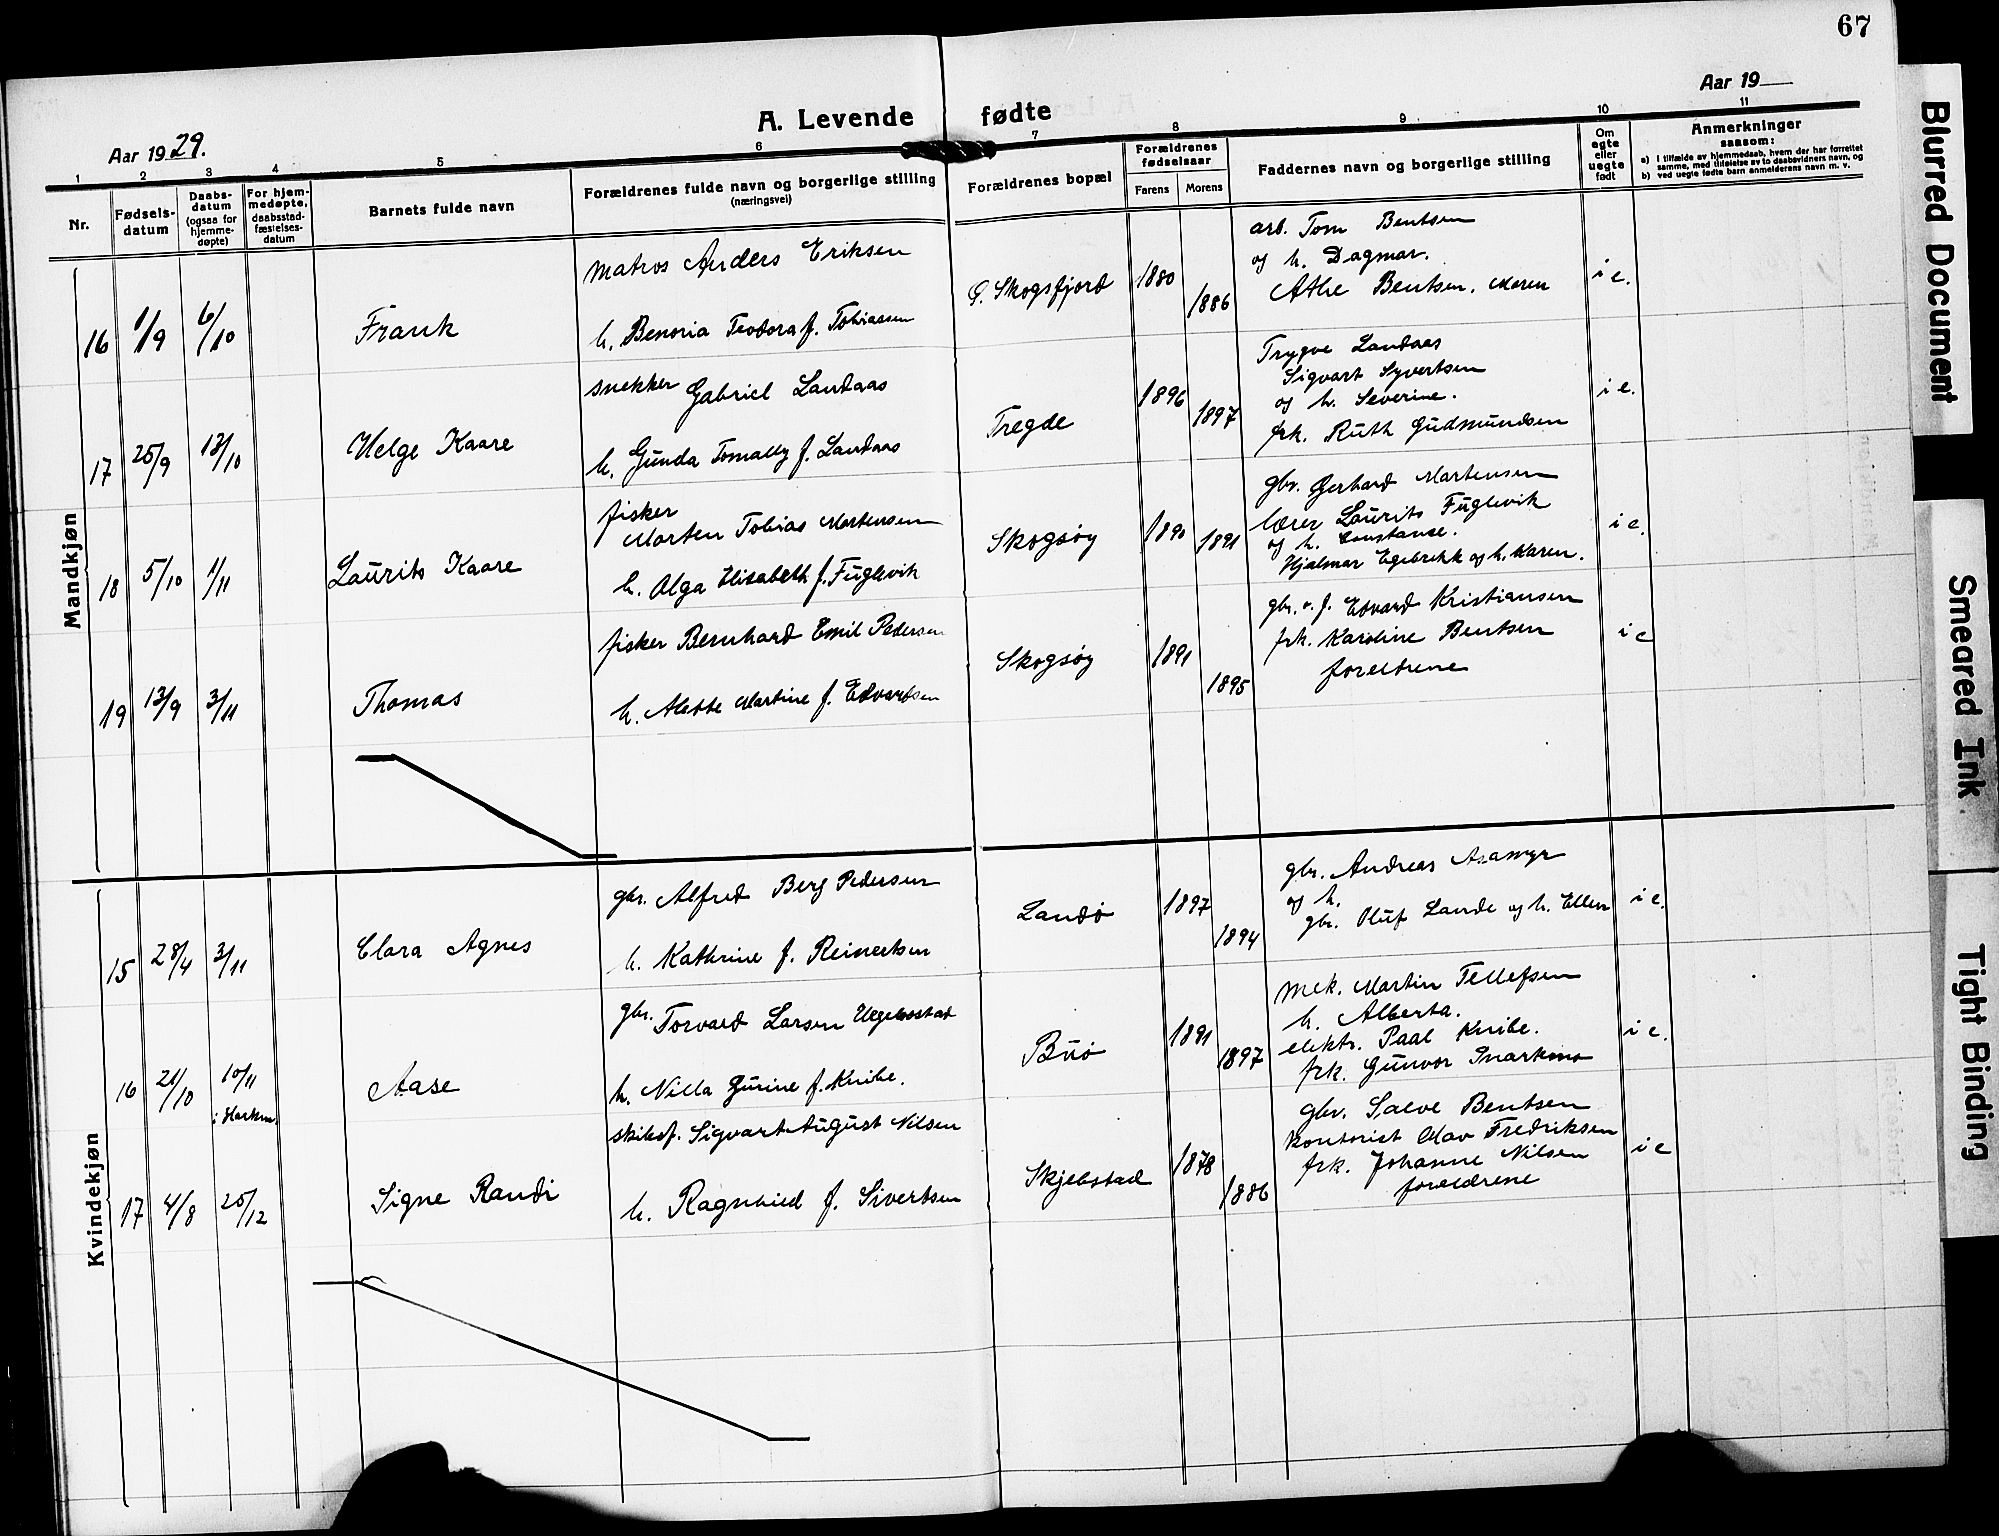 67
Aar 1929.
A. Levende fødte
Aar 19
1 2 3 4 5 6 7 8 9 10 11
Nr.
Fødsels-
datum
Daabs-
datum
(ogsaa for
hjemme-
døpte)
For hjem-
medøpte,
daabsstad-
fæstelses-
datum
Barnets fulde navn
Forældrenes fulde navn og borgerlige stilling
(næringsvei)
Forældrenes bopæl
Forældrenes
fødselsaar
Farens Morens
Faddernes navn og borgerlige stilling
Om
egte
eller
uegte
født
Anmerkninger
saasom:
a) I tilfælde av hjemmedaab, hvem der har forrettet
samme, med tilføielse av to daabsvidners navn, og
b) ved uegte fødte barn anmelderens navn m. v.
Mandkjøn
16 1/9 6/10 Frank
matros Anders Eriksen
h. Benoria Teodora f. Tobiassen
Ø. Skogsfjord 1880 1886
arb. Tom Bentsen
og h. Dagmar.
Athe Bentsen. Moren
i e.
17 25/9 13/10 Helge Kaare
snekker Gabriel Landaas
h. Gunda Tomally f. Landaas
Tregde 1896 1897
Trygve Landaas
Sigvart Syvertsen
og h. Severine.
frk. Ruth Gudmundsen
i e.
18 5/10 1/11 Laurits Kaare
fisker
Morten Tobias Mortensen
h. Olga Elisabeth f. Fuglevik
Skogsøy 1890 1891
gbr. Gerhard Martensen
lærer Laurits Fuglevik
og h. Constanse.
Hjalmar Egebrekk og h. Karen.
i e.
19 13/9 3/11 Thomas
fisker Bernhard Emil Pedersen
h. Alette Martine f. Edvardsen
Skogsøy 1891 1895
gbr. v. f. Edvard Kristiansen
frk. Karoline Bentsen
foreldrene
i e
Kvindekjøn
15 28/4 3/11 Clara Agnes
gbr. Alfred Berg Pedersen
h. Kathrine f. Reinertsen
Landø 1897 1894
gbr. Andreas Asamyr
og h.
gbr. Oluf Lande og h. Ellen
i e.
16 21/10 10/11
i Harkm. Aase
gbr. Torvard Larsen Uegelsstad
h. Nilla Gurine f. Knibe.
Buø 1891 1897
mek. Martin Tellefsen
h. Alberta.
elektr. Paal Knibe.
frk. Gunvor Snarkmo
i e.
17 4/8 25/12 Signe Randi
skibsf. Sigvart August Nilsen
h. Ragnhild f. Sivertsen
Skjebstad 1878 1886
gbr. Salve Bentsen
kontorist Olav Fredriksen
frk. Johanne Nilsen
foreldrene
i e
Blurred Document
Smeared Ink
Tight Binding